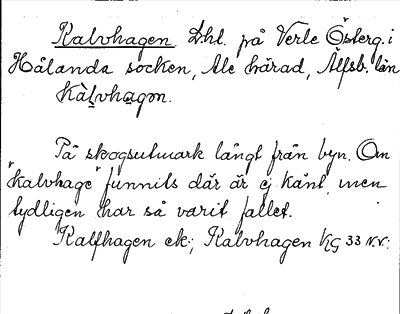 Kalvhagen. Lht. på Verle Österg. i
Hålanda socken, Ale härad, Älfsb. län
kàlvhagən.
På skogsutmark långt från byn. Om
"kalvhage" funnits där är ej känt, men
tydligen har så varit fallet.
Kalfhagen ek; Kalvhagen KG 33 N.V.: